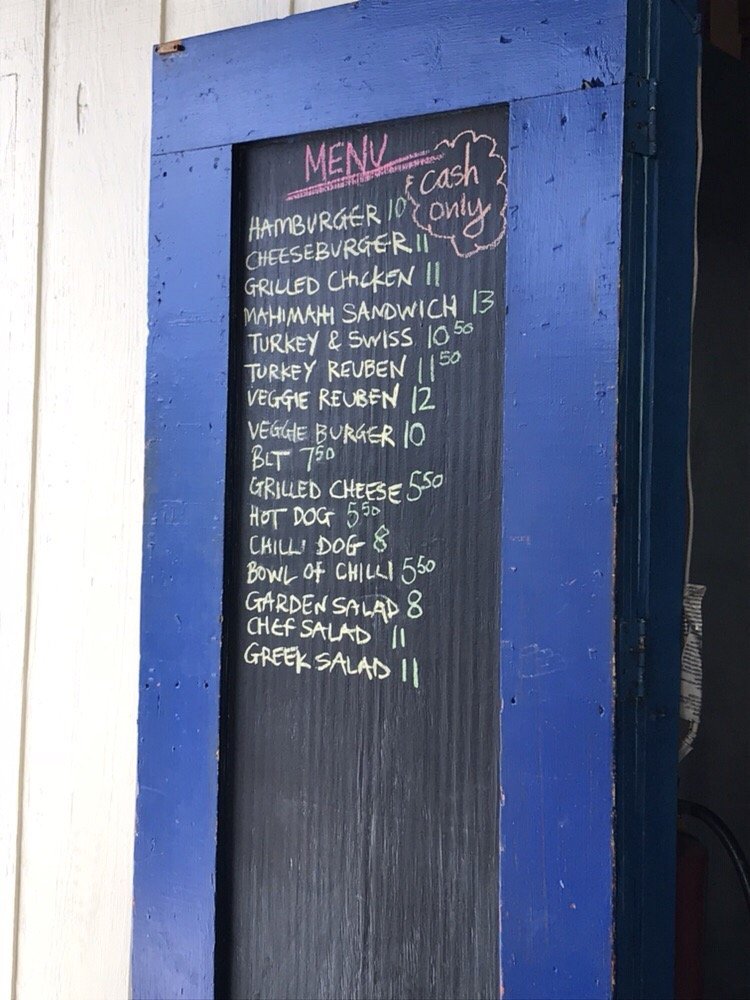 MENU
cash
only
HAMBURGER 10
CHEESEBURGER 11
GRILLED CHICKEN 11
MAHIMAHI SANDWICH 13
TURKEY & SWISS 10 50
TURKEY REUBEN 11 50
VEGGIE REUBEN 12
VEGGIE BURGER 10
BLT 7 50
GRILLED CHEESE 5 50
HOT DOG 5 50
CHILLI DOG 8
BOWL OF CHILLI 5 50
GARDEN SALAD 8
CHEF SALAD 11
GREEK SALAD 11